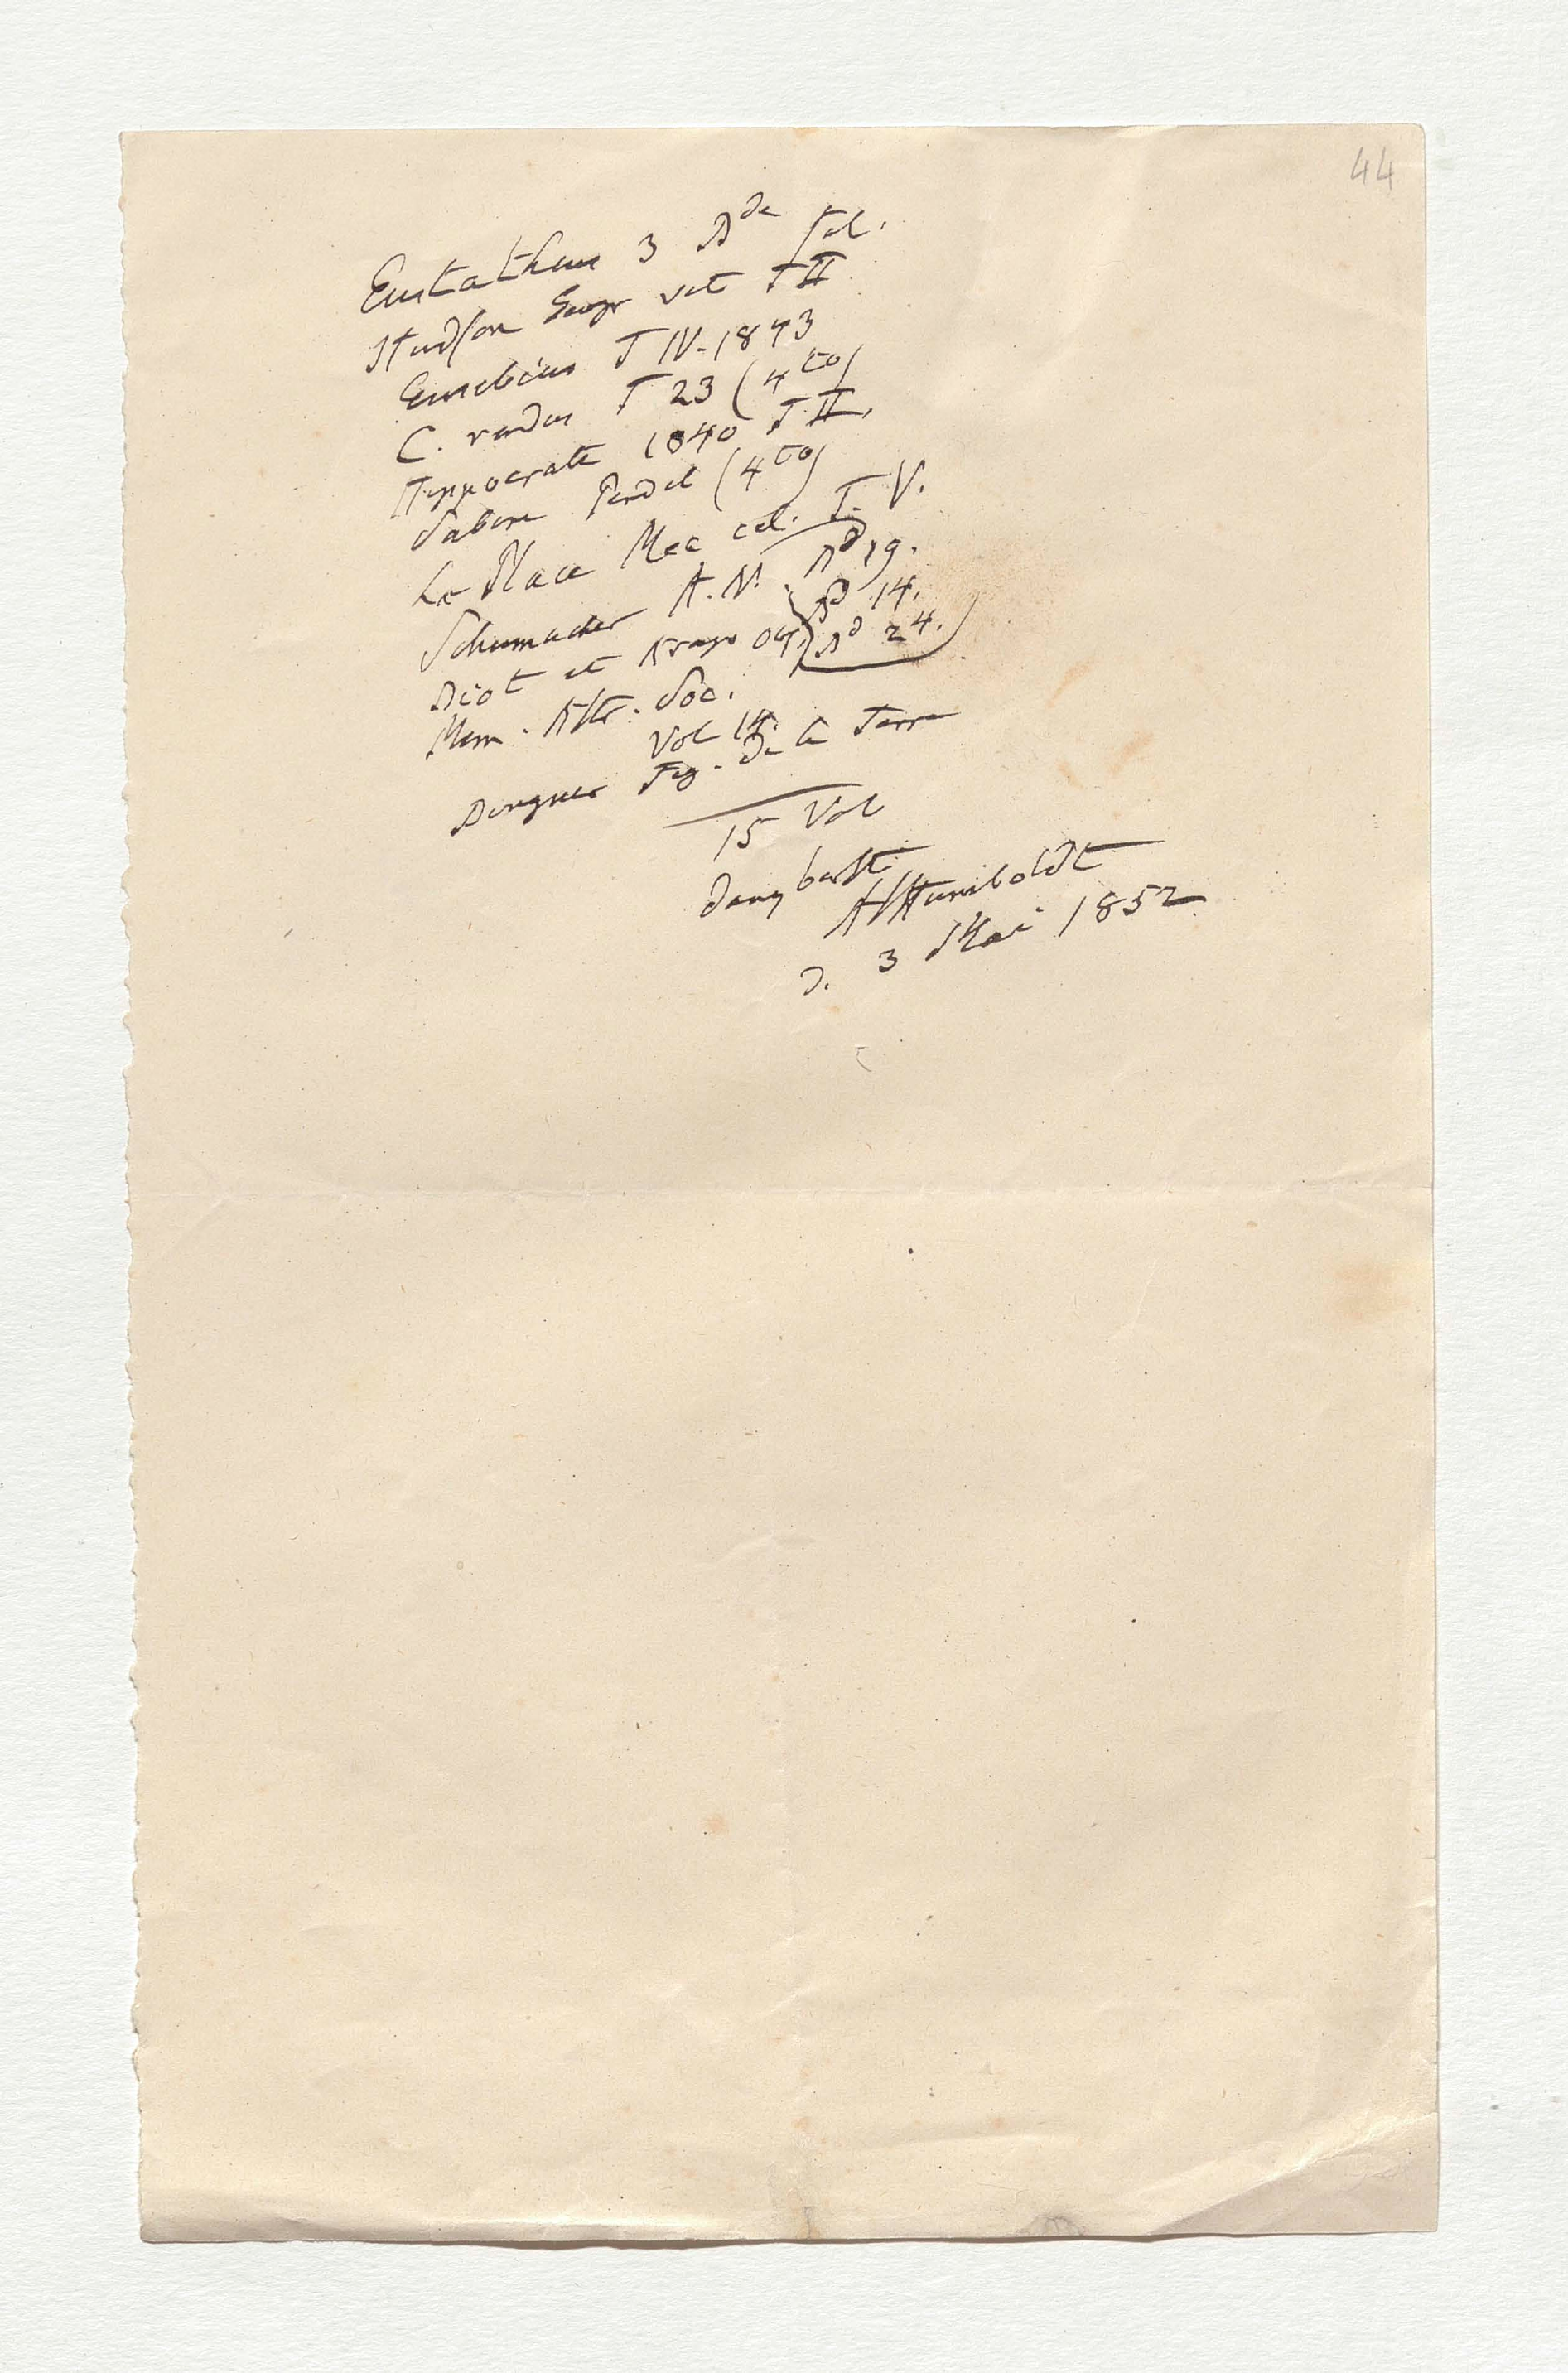 44
Eustathius 3 Bde fol.
Hudson Geogr vet T II
Eusebius T IV. 1843
C. rendus T 23 (4to)
Hippocrate 1840 T. II.
Sabine Pendel (4to)
La Place Mec cel. T. V.
Schumacher A. N. Bd 19.
Bd 14.
Biot et Arago Bd 24.
Mem. Astr. Soc.
Vol 14.
Bouguer Fig. de la Terre
15 Vol
dankbarst
AlHumboldt
d. 3 Mai 1852